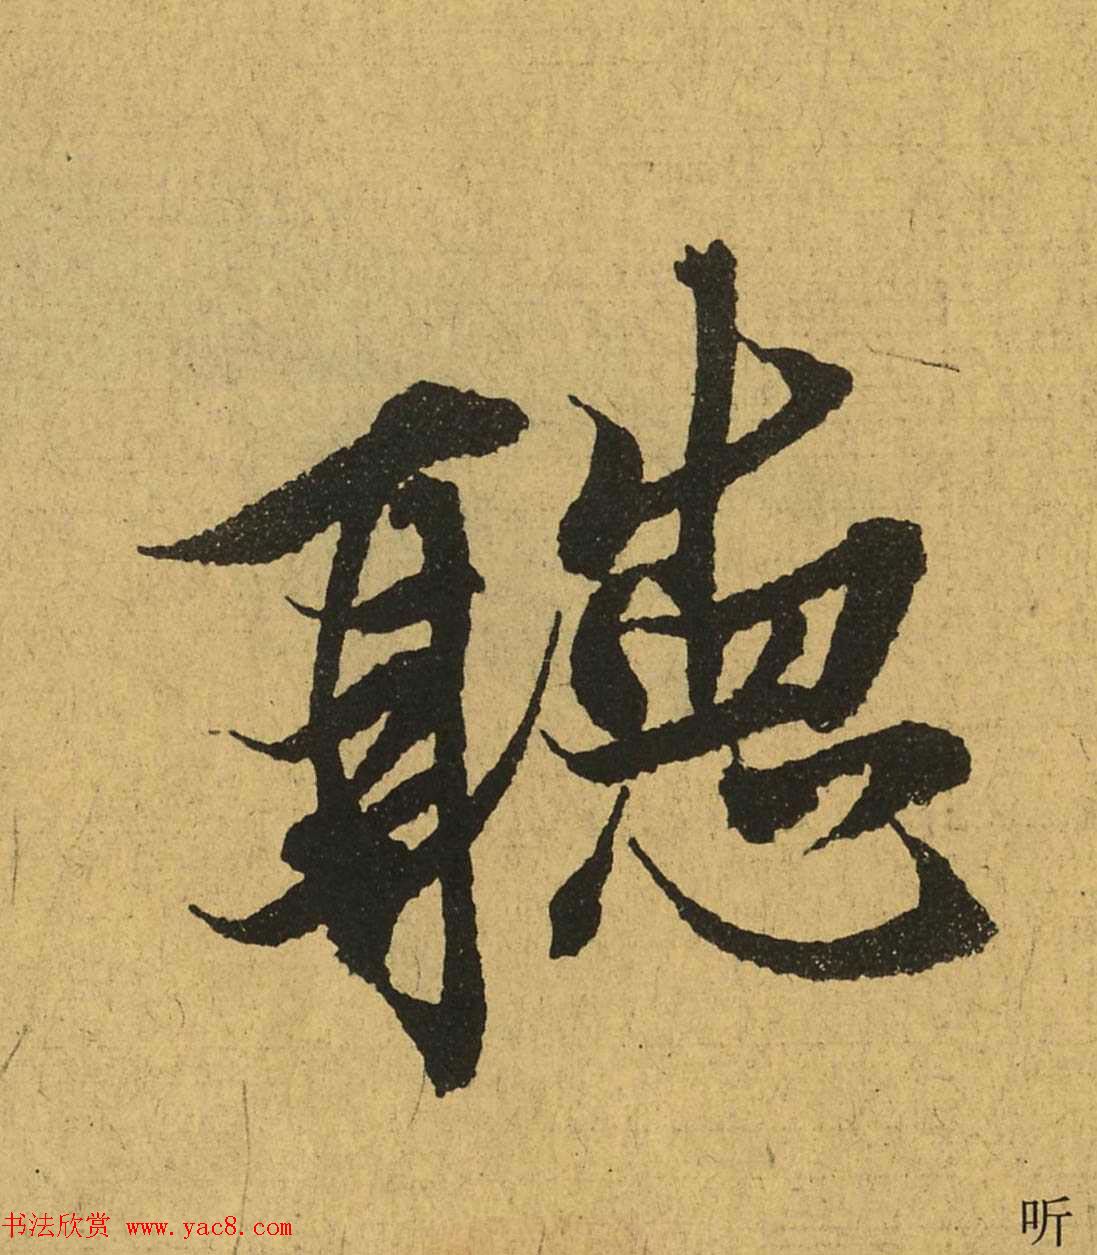 聽
听
书法欣赏 www.yac8.com